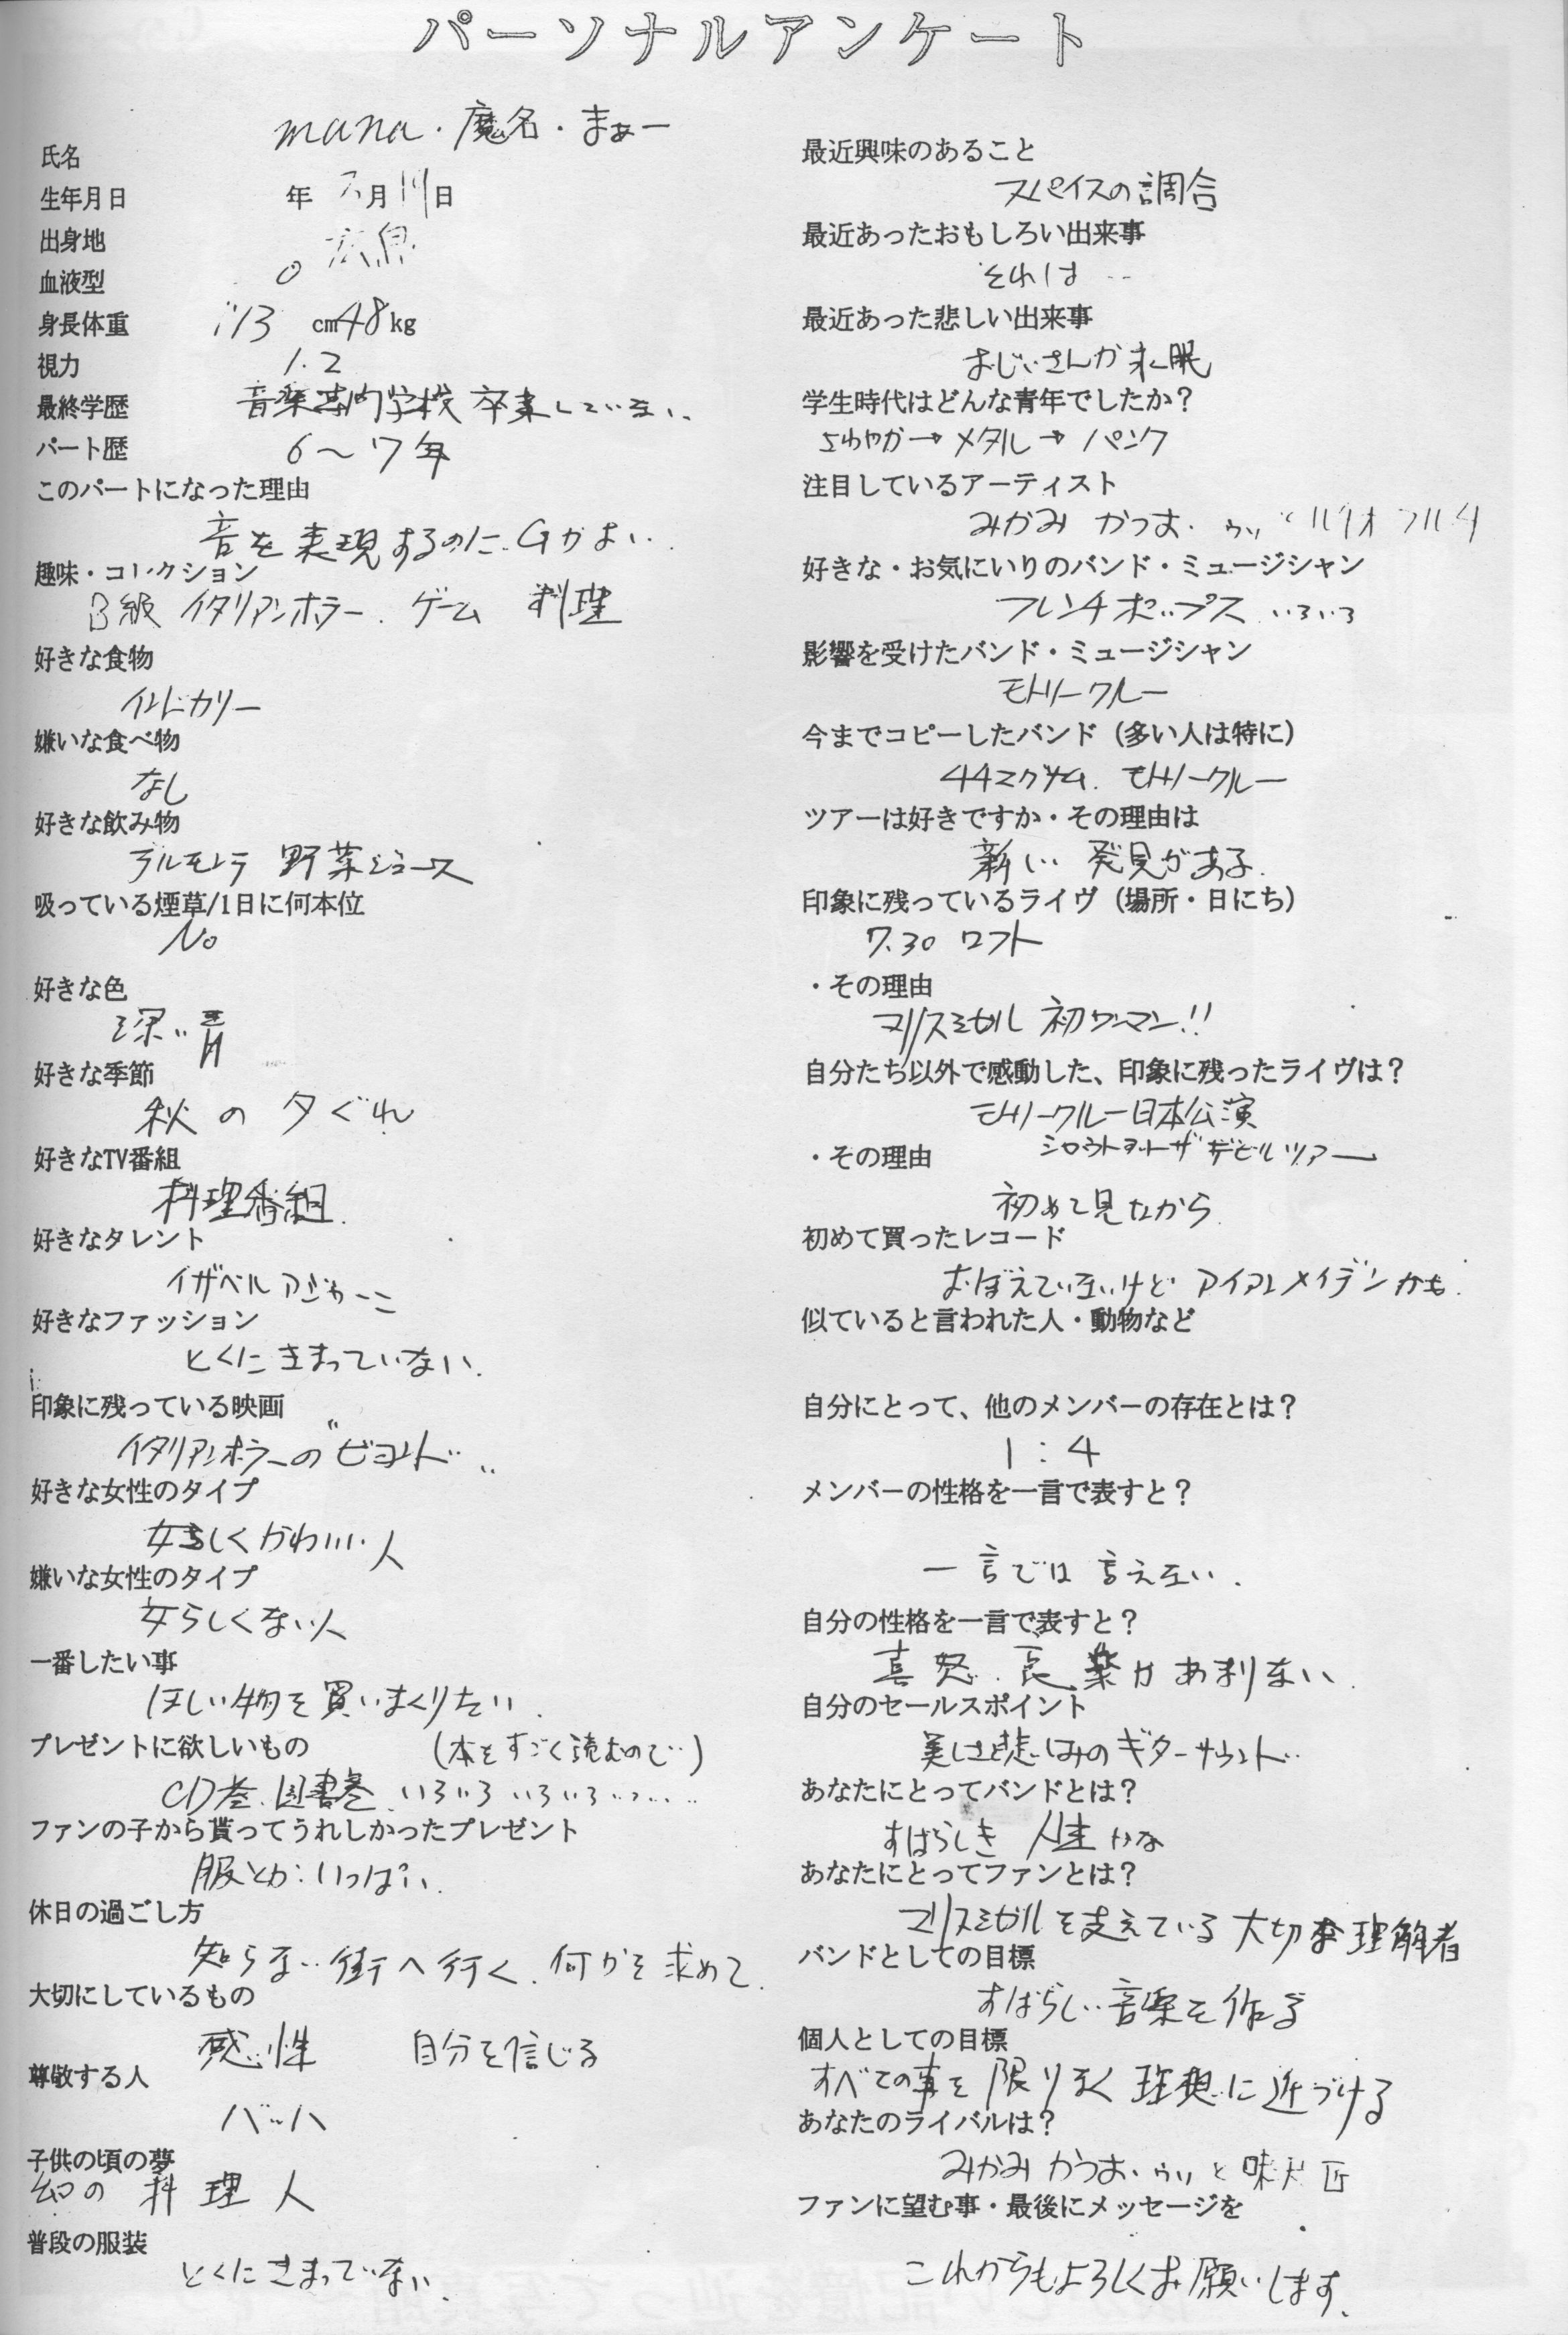 パーソナルアンケート
氏名 mana・魔名・まぁー
生年月日 年 3月19日
出身地 広島
血液型 O
身長体重 cm48kg
視力 1.2
最終学歴 音楽専門学校 卒業していない、
パート歴 6〜7年
このパートになった理由
音を表現するのに、Gがよい、
趣味・コレクション
B級 イタリアンホラー、ゲーム 料理
好きな食物
インドカリー
嫌いな食べ物
なし
好きな飲み物
デルモンテ 野菜ジュース
吸っている煙草/1日に何本位
No
好きな色
深い青
好きな季節
秋の夕ぐれ
好きなTV番組
料理番組、
好きなタレント
イザベル アジャーニ
好きなファッション
とくにきまっていない、
印象に残っている映画
イタリアンホラーの“ビヨンド”
好きな女性のタイプ
女らしくかわいい人
嫌いな女性のタイプ
女らしくない人
一番したい事
ほしい物を買いまくりたい、
プレゼントに欲しいもの (本をすごく読むので…)
CD巻、図書巻、いろいろいろいろ……
ファンの子から貰ってうれしかったプレゼント
服とか…いっぱい、
休日の過ごし方
知らない街へ行く、何かを求めて、
大切にしているもの
感性 自分を信じる
尊敬する人
バッハ
子供の頃の夢
幻の料理人
普段の服装
とくにきまっていない、
最近興味のあること
スパイスの調合
最近あったおもしろい出来事
それは…
最近あった悲しい出来事
おじいさんが永眠
学生時代はどんな青年でしたか？
さわやか→メタル→パンク
注目しているアーティスト
みかみ かつお・
好きな・お気にいりのバンド・ミュージシャン
フレンチポップス、いろいろ
影響を受けたバンド・ミュージシャン
モトリークルー
今までコピーしたバンド（多い人は特に）
44マグナム、モトリークルー
ツアーは好きですか・その理由は
新しい 発見がある、
印象に残っているライヴ（場所・日にち）
7.30 ロフト
・その理由
マリスミゼル 初ワンマン!!
自分たち以外で感動した、印象に残ったライヴは？
モトリークルー日本公演
シャウトアットザデビルツアー
・その理由
初めて見たから
初めて買ったレコード
おぼえていないけど アイアンメイデンかも、
似ていると言われた人・動物など
自分にとって、他のメンバーの存在とは？
1:4
メンバーの性格を一言で表すと？
一言では言えない、
自分の性格を一言で表すと？
喜怒、哀楽があまりない、
自分のセールスポイント
美しさと悲しみのギターサウンド…
あなたにとってバンドとは？
すばらしき 人生かな
あなたにとってファンとは？
マリスミゼルを支えている大切な理解者
バンドとしての目標
すばらしい音楽を作る
個人としての目標
すべての事を限りなく理想に近づける
あなたのライバルは？
みかみ かつお・
ファンに望む事・最後にメッセージを
これからもよろしくお願いします、